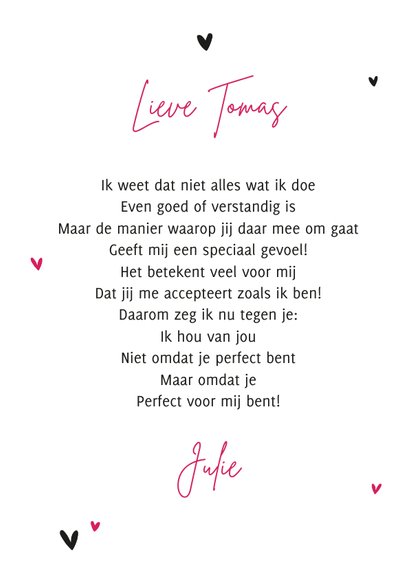 Lieve Tomas
Ik weet dat niet alles wat ik doe
Even goed of verstandig is
Maar de manier waarop jij daar mee om gaat
Geeft mij een speciaal gevoel!
Het betekent veel voor mij
Dat jij me accepteert zoals ik ben!
Daarom zeg ik nu tegen je:
Ik hou van jou
Niet omdat je perfect bent
Maar omdat je
Perfect voor mij bent!
Julie